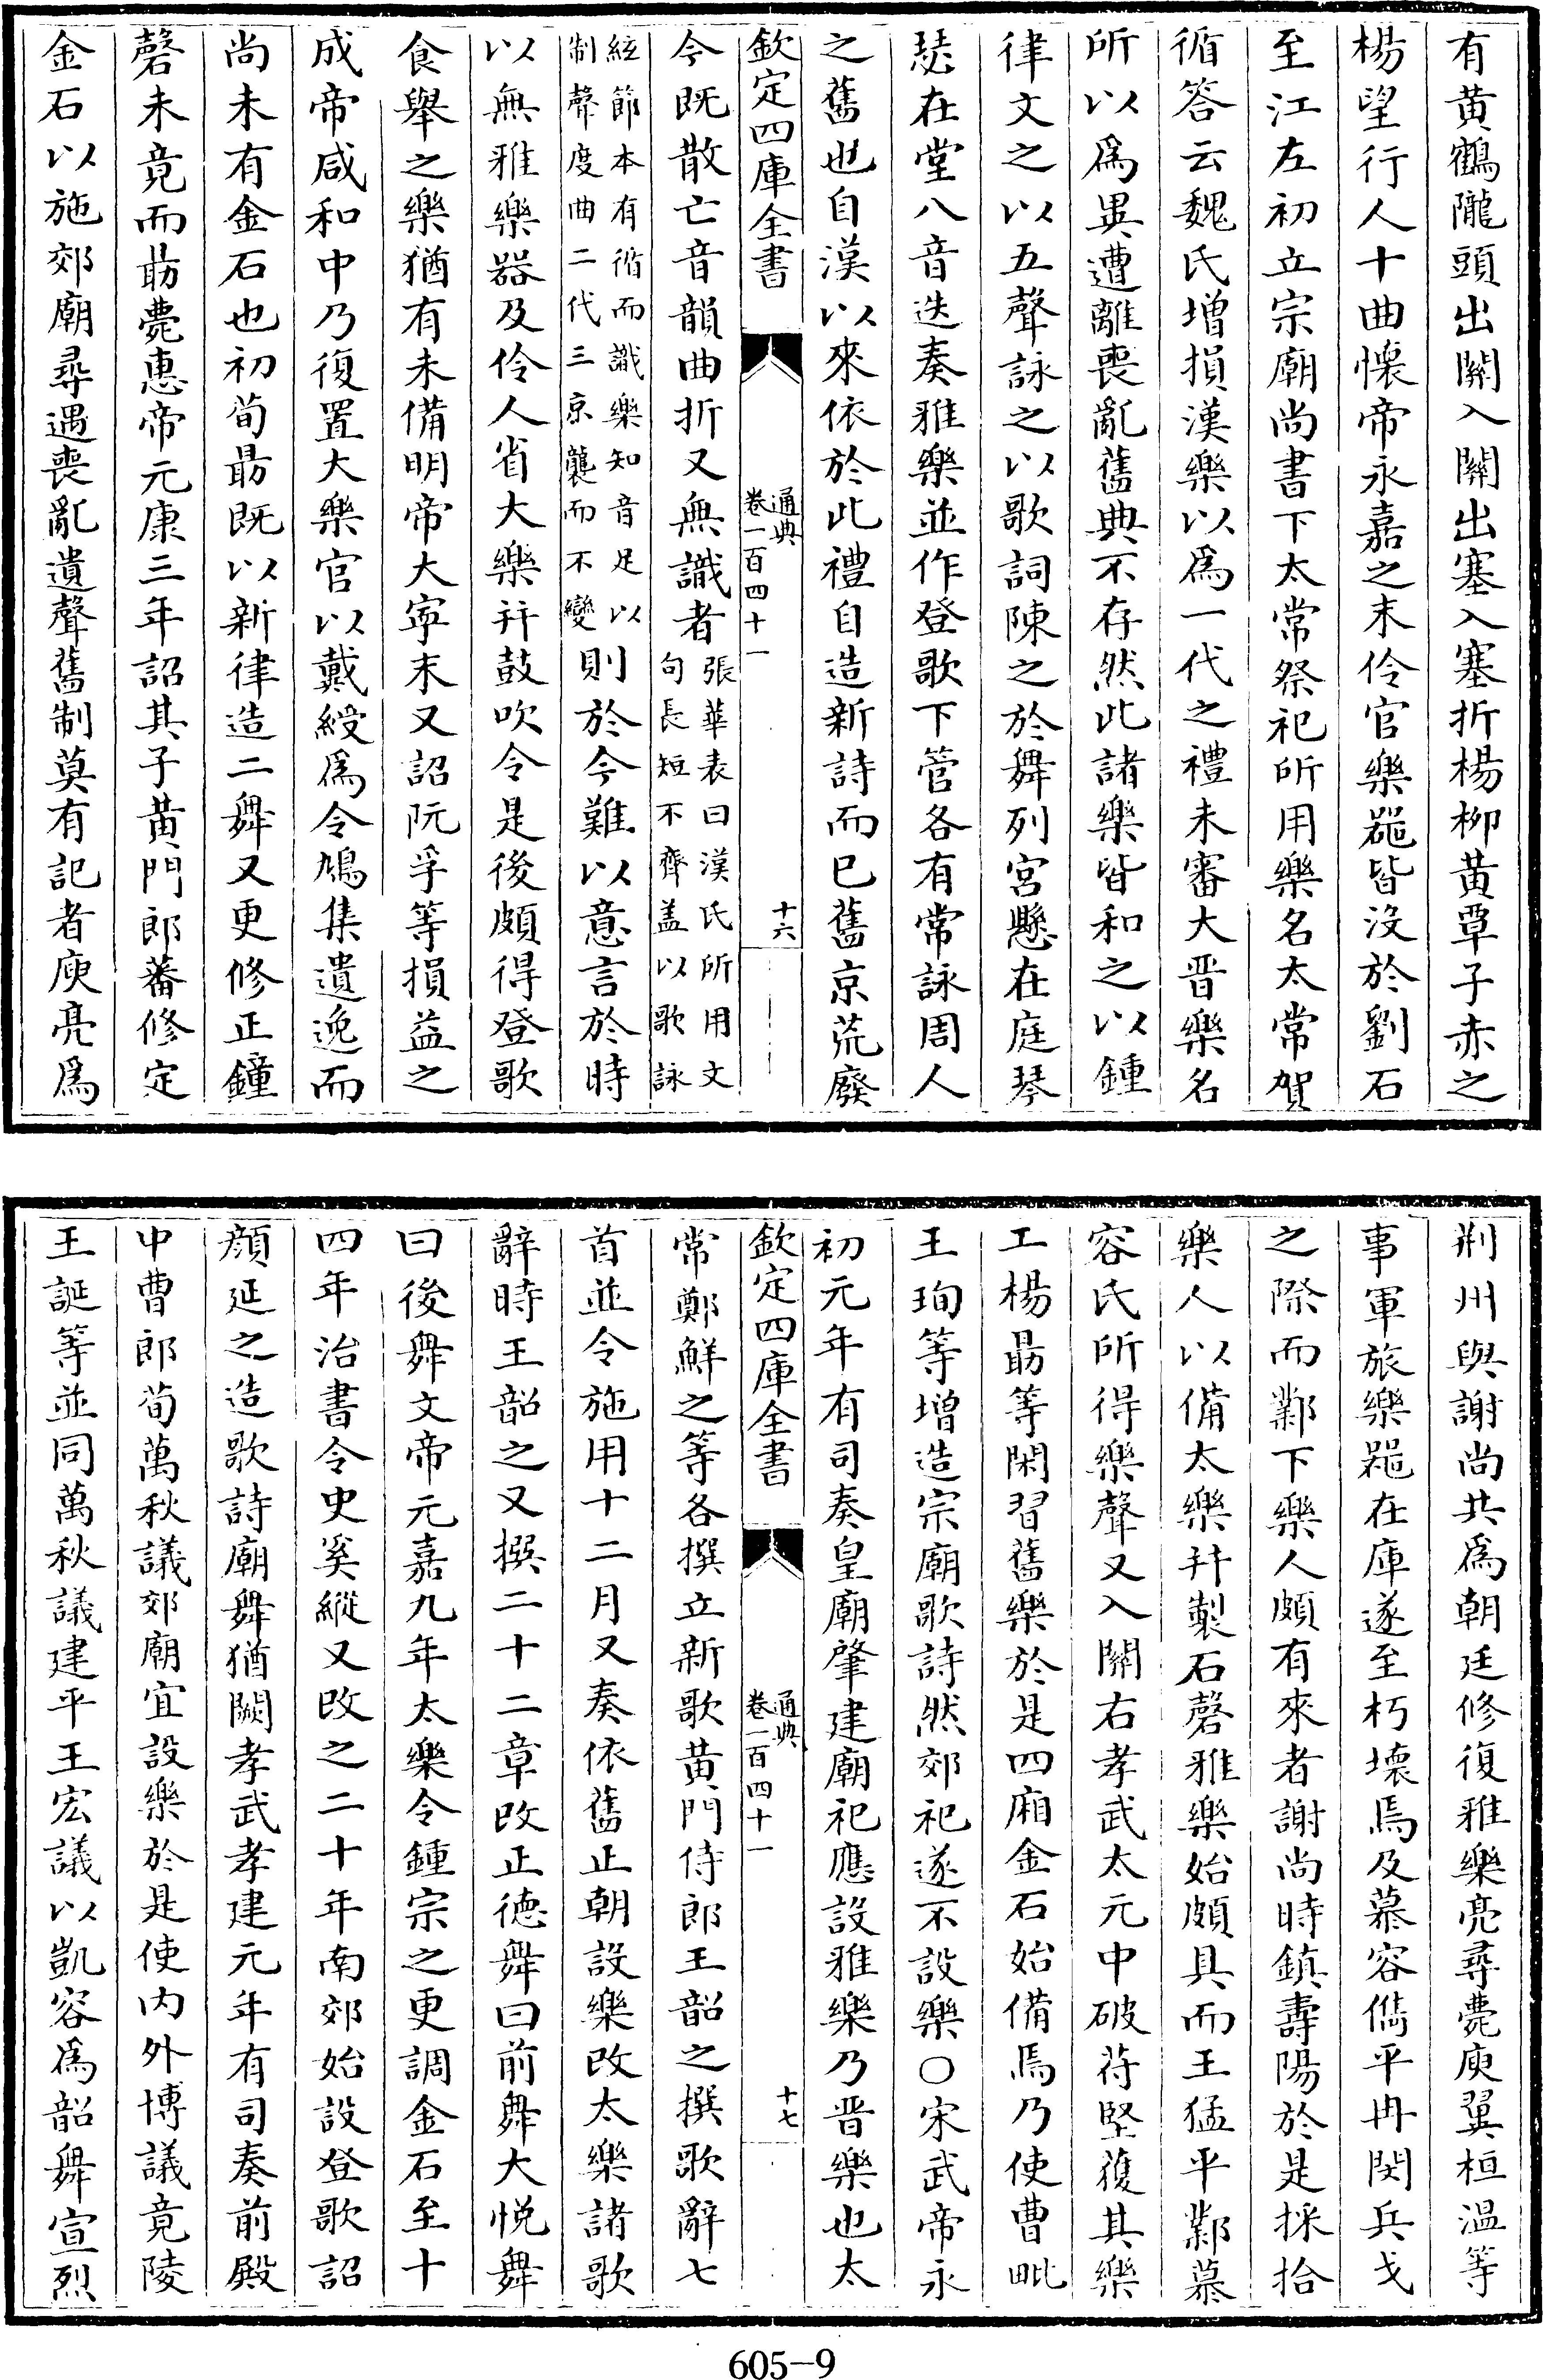 有黄鶴隴頭出關入關出塞入塞折楊柳黄覃子赤之
楊望行人十曲懐帝永嘉之末伶官樂器皆没於劉石
至江左初立宗廟尚書下太常祭祀所用樂名太常賀
循答云魏氏增損漢樂以為一代之禮未審大晋樂名
所以為異遭離喪亂舊典不存然此諸樂皆和之以鍾
律文之以五聲詠之以歌詞陳之於舞列宫懸在庭琴
瑟在堂八音迭奏雅樂並作登歌下管各有常詠周人
之舊也自漢以來依於此禮自造新詩而已舊京荒廢
欽定四庫全書
通典
卷一百四十一
十六
今既散亡音韻曲折又無識者
張華表曰漢氏所用文
句長短不齊盖以歌詠
絃節本有循而識樂知音足以
制聲度曲二代三京襲而不變
則於今難以意言於時
以無雅樂器及伶人省大樂并鼓吹令是後頗得登歌
食舉之樂猶有未備明帝大寧末又詔阮孚等損益之
成帝咸和中乃復置大樂官以戴綬為令鳩集遺逸而
尚未有金石也初荀勗既以新律造二舞又更修正鐘
磬未竟而勗薨惠帝元康三年詔其子黄門郎蕃修定
金石以施郊廟尋遇喪亂遺聲舊制莫有記者庾亮為
荆州與謝尚共為朝廷修復雅樂亮尋薨庾翼桓温等
事軍旅樂器在庫遂至朽壞焉及慕容儁平冉閔兵戈
之際而鄴下樂人頗有來者謝尚時鎮壽陽於是採拾
樂人以備太樂并製石磬雅樂始頗具而王猛平鄴慕
容氏所得樂聲又入關右孝武太元中破苻堅獲其樂
工楊勗等閑習舊樂於是四廂金石始備焉乃使曹毗
王珣等增造宗廟歌詩然郊祀遂不設樂〇宋武帝永
初元年有司奏皇廟肇建廟祀應設雅樂乃晋樂也太
欽定四庫全書
通典
卷一百四十一
十七
常鄭鮮之等各撰立新歌黄門侍郎王韶之撰歌辭七
首並令施用十二月又奏依舊正朝設樂改太樂諸歌
辭時王韶之又撰二十二章改正徳舞曰前舞大悦舞
曰後舞文帝元嘉九年太樂令鍾宗之更調金石至十
四年治書令史奚縱又改之二十年南郊始設登歌詔
顔延之造歌詩廟舞猶闕孝武孝建元年有司奏前殿
中曹郎荀萬秋議郊廟宜設樂於是使内外博議竟陵
王誕等並同萬秋議建平王宏議以凱容為韶舞宣烈
605-9